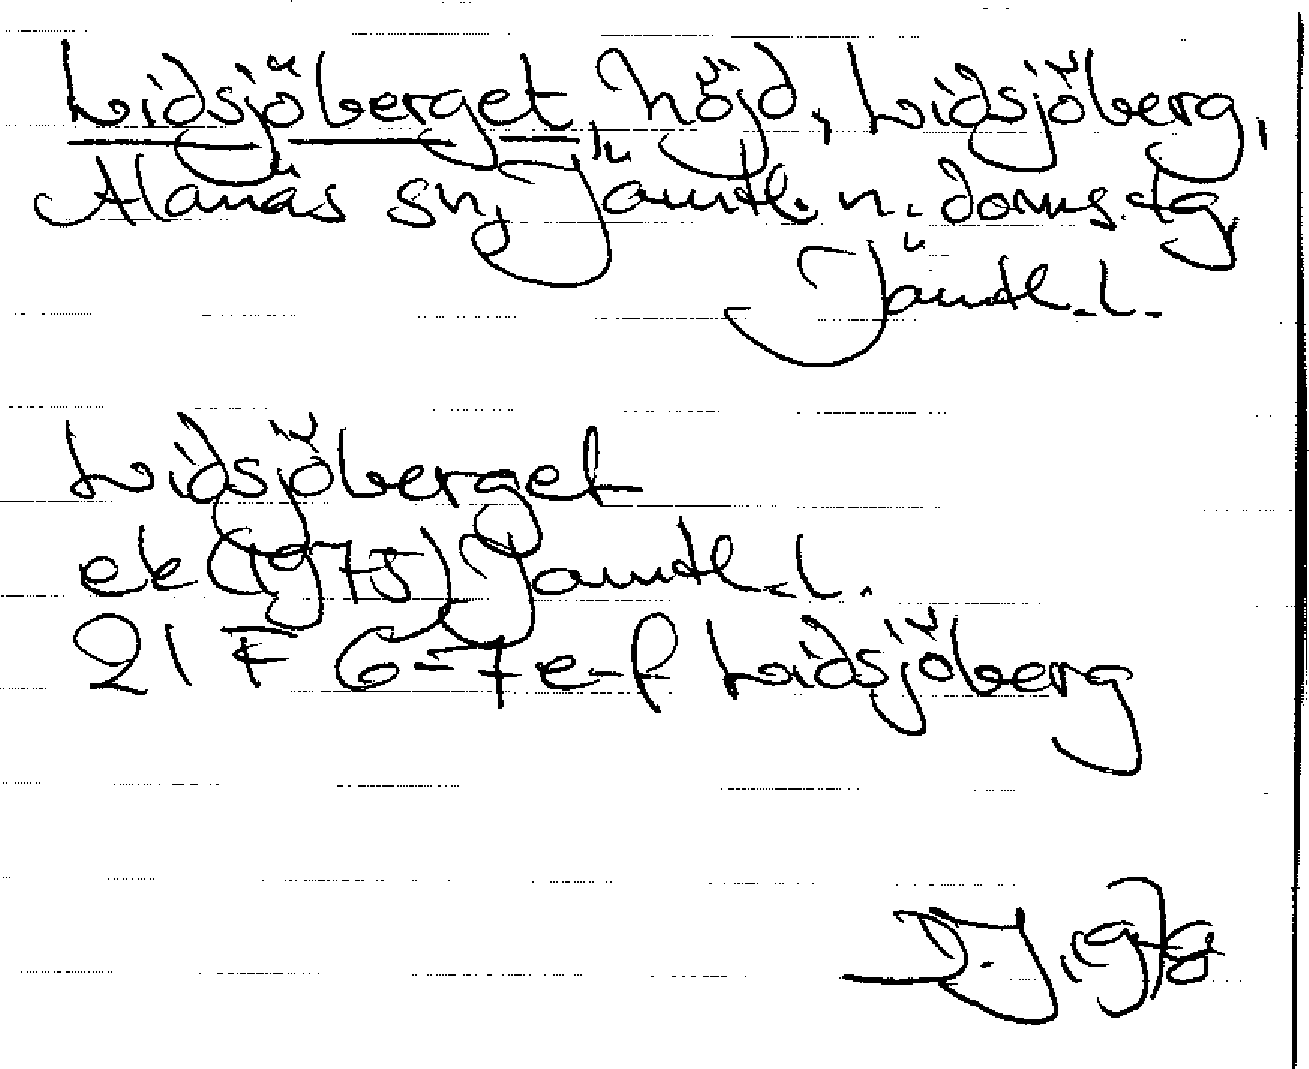 Lidsjöberget, höjd, Lidsjöberg,
Alanäs sn, Jämtl. n. doms. tg,
Jämtl. l.
Lidsjöberget
ek (1975) Jämtl. l.
21 F 6-7 e-f Lidsjöberg